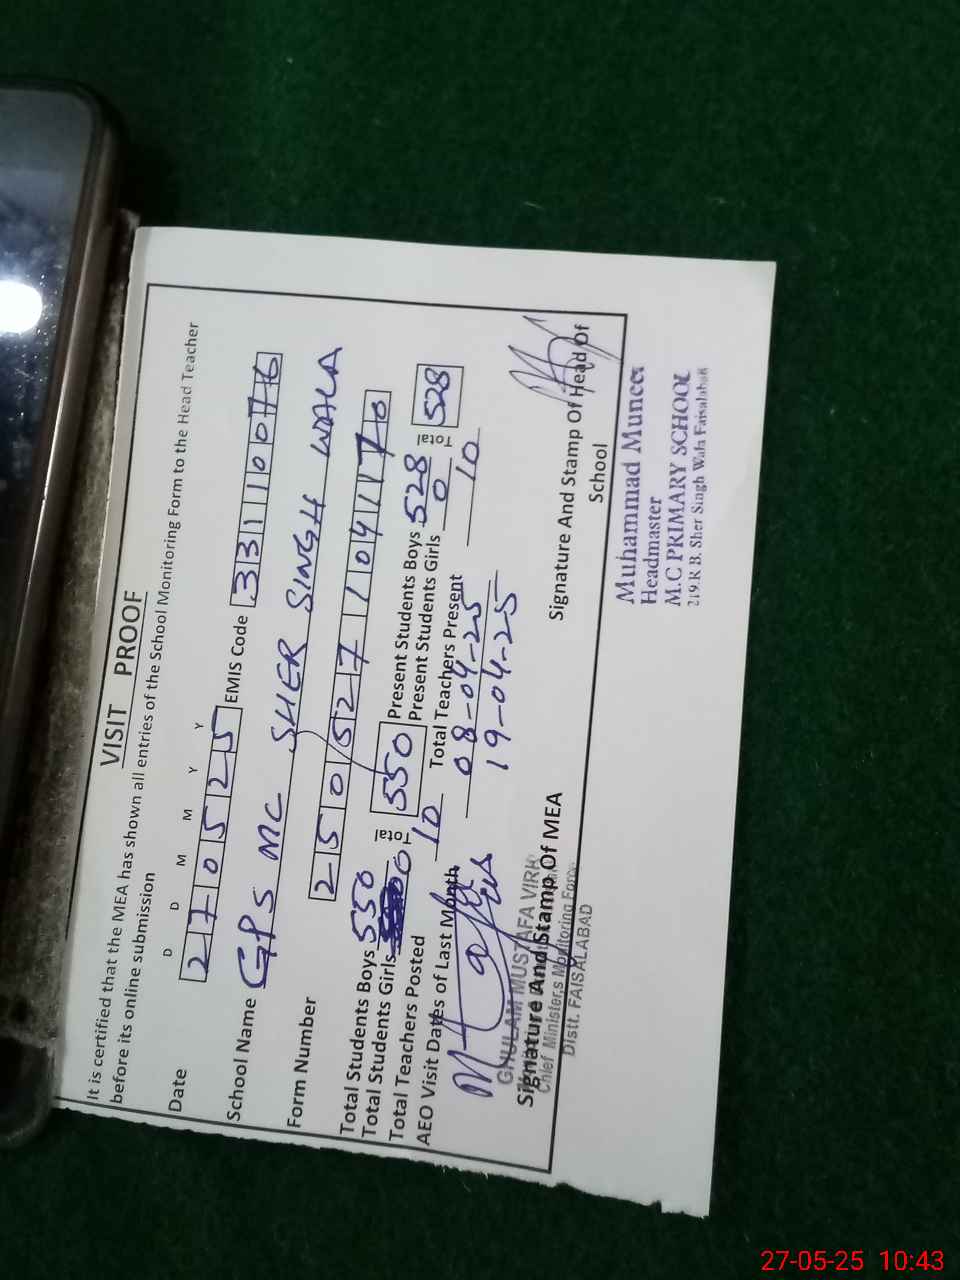 VISIT PROOF
It is certified that the MEA has shown all entries of the School Monitoring Form to the Head Teacher
before its online submission
D D M M Y Y
Date 270525 EMIS Code 33110076
School Name GPS MC SHER SINGH WALA
Form Number 25052710417
Total Students Boys 550 Total 550 Present Students Boys 528 Total 528
Total Students Girls 0 Present Students Girls 0
Total Teachers Posted 10 Total Teachers Present 10
AEO Visit Dates of Last Month 08-04-25
19-04-25
GHULAM MUSTAFA VIRK
Signature And Stamp Of MEA
Chief Minister,s Monitoring Force
Distt. FAISALABAD
Signature And Stamp Of Head Of
School
Muhammad Muneer
Headmaster
M.C PRIMARY SCHOOL
219.R B. Sher Singh Wala Faisalabad
27-05-25 10:43